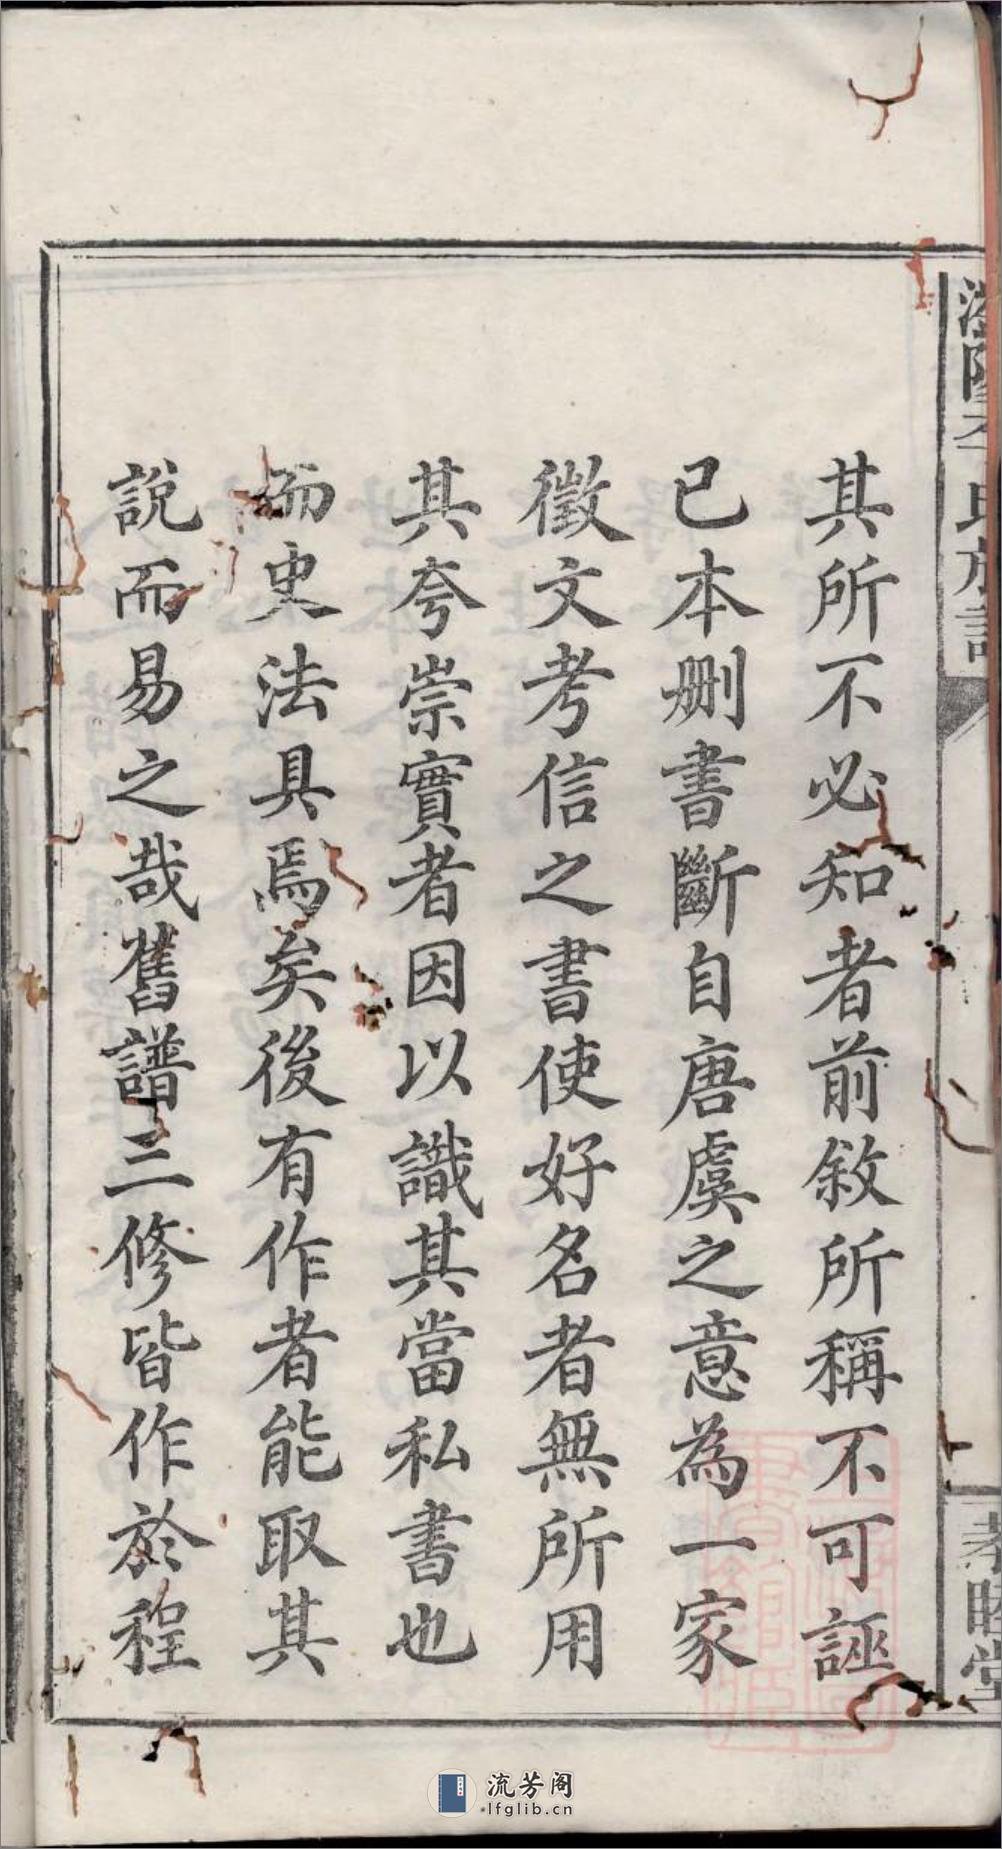 其所不必知者前敘所稱不可誣
已本刪書斷自唐虞之意為一家
徵文考信之書使好名者無所用
其夸崇實者因以識其當私書也
而史法具焉矣後有作者能取其
說而易之哉舊譜三修皆作於程
氏族譜
睦堂
流芳阁
lfglib.cn